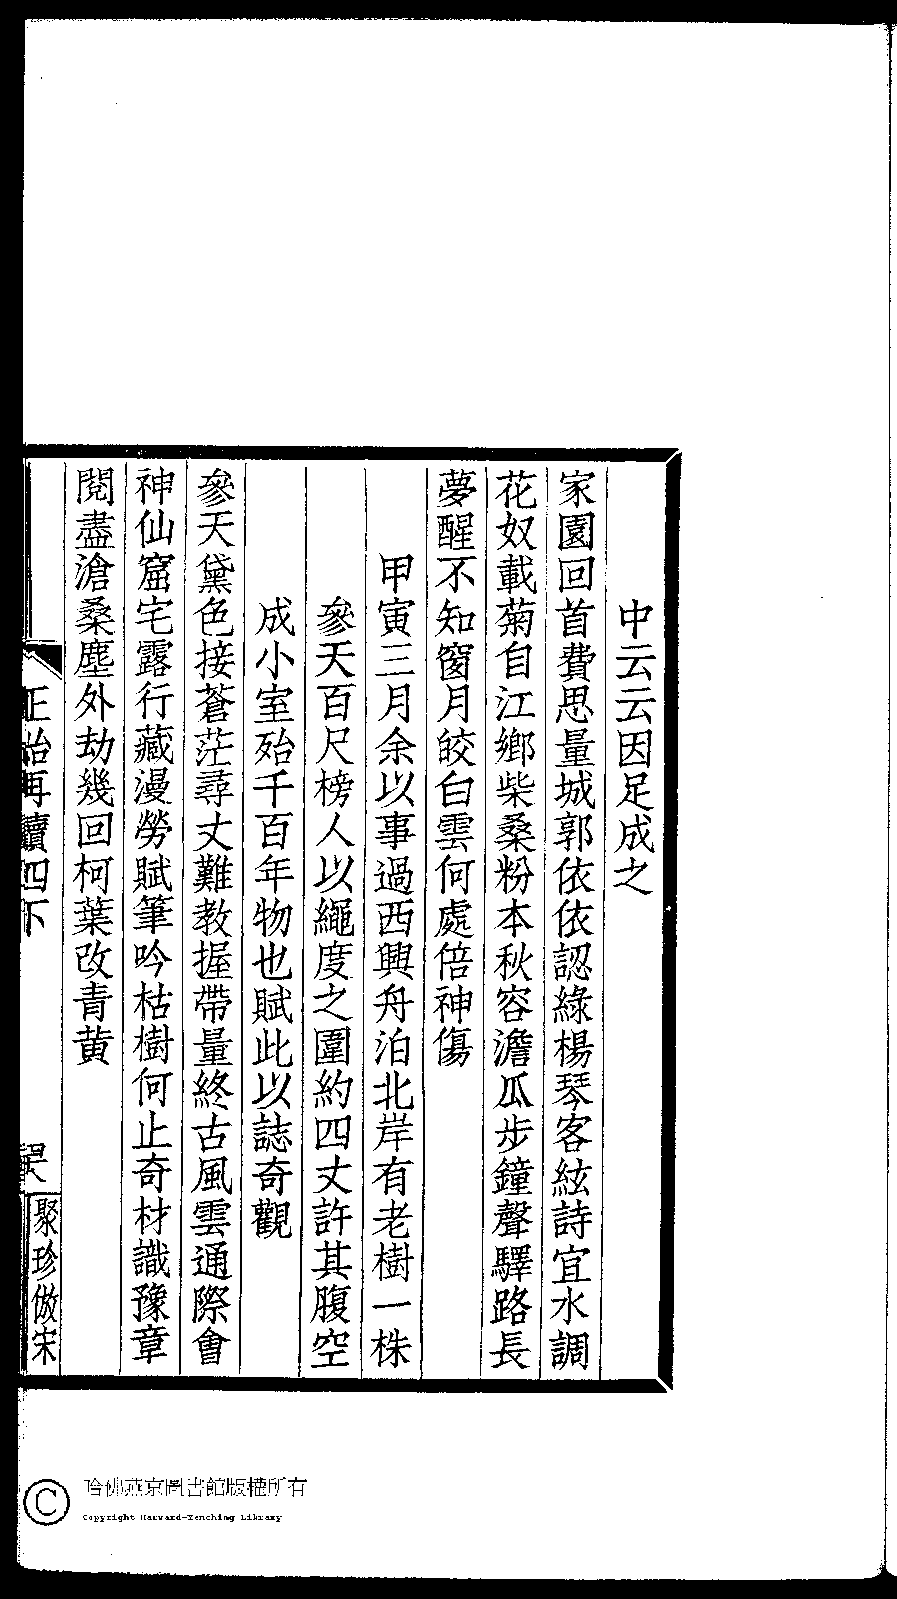 中云云因足成之
家園回首費思量城郭依依認綠楊琴客絃詩宜水調
花奴載菊自江鄉柴桑粉本秋容澹瓜步鐘聲驛路長
夢醒不知窗月皎白雲何處倍神傷
甲寅三月余以事過西興舟泊北岸有老樹一株
參天百尺榜人以繩度之圍約四丈許其腹空
成小室殆千百年物也賦此以誌奇觀
參天黛色接蒼茫尋丈難教握帶量終古風雲通際會
神仙窟宅露行藏漫勞賦筆吟枯樹何止奇材識豫章
閱盡滄桑塵外劫幾回柯葉改青黃
正始再續四下
聚珍倣宋
哈佛燕京圖書館版權所有
Copyright Harvard-Yenching Library